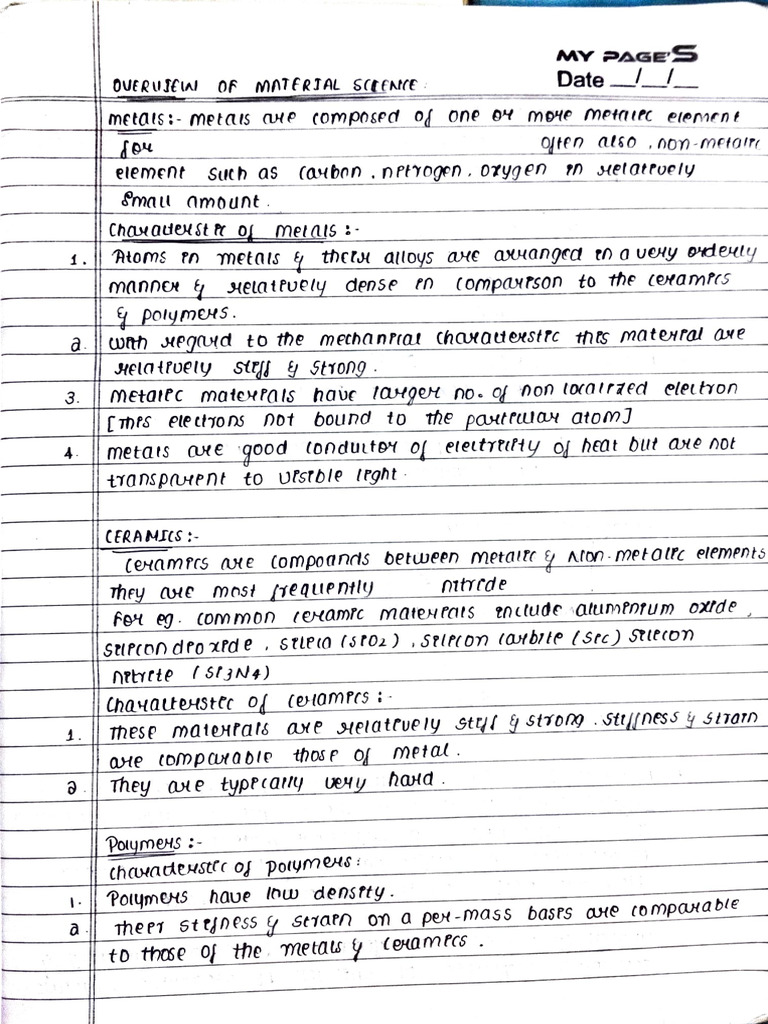 MY PAGE'S
OVERVIEW OF MATERIAL SCIENCE.
Date __/__/__
metals:- metals are composed of one or more metalic element
for often also, non-metalic
element such as carbon, nitrogen, oxygen in relatively
small amount.
Characterstic of metals :-
1. Atoms in metals & their alloys are arranged in a very orderly
manner & relatively dense in comparison to the ceramics
& polymers.
2. with regard to the mechanical characterstic this material are
relatively stiff & strong.
3. Metalic materials have larger no. of non localized electron
[This electrons not bound to the particular atom]
4. metals are good conductor of electricity of heat but are not
transparent to visible light.
CERAMICS :-
Ceramics are compoands between metalic & Non-metalic elements
They are most frequently nitride
For eg. common ceramic materials include alumunium oxide,
silicon dioxide, silica (SiO2), silicon carbite (Sic) silicon
nitrite (Si3N4)
Characterstic of ceramics :-
1. These materials are relatively stiff & strong. stiffness & strain
are comparable those of metal.
2. They are typically very hard.
Polymers :-
characterstic of polymers:
1. Polymers have low density.
2. Their stifness & strain on a per-mass bases are comparable
to those of the metals & ceramics.